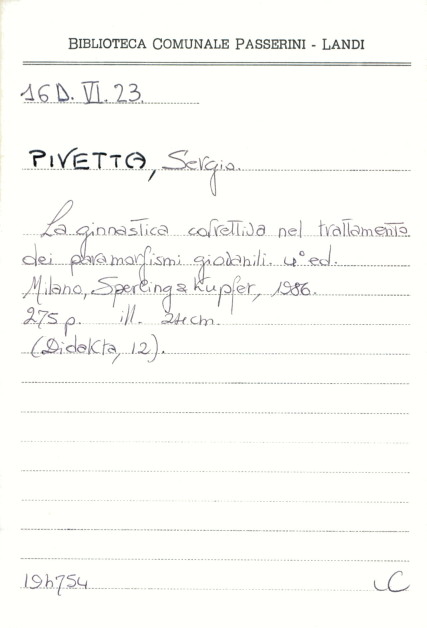 BIBLIOTECA COMUNALE PASSERINI - LANDI
16 D. VI. 23.
PIVETTA, Sergio.
La ginnastica correttiva nel trattamento
dei paramorfismi giovanili. 4° ed.
Milano, Sperling & Kupfer, 1986.
275 p. ill. 24 cm.
(Didakta, 12).